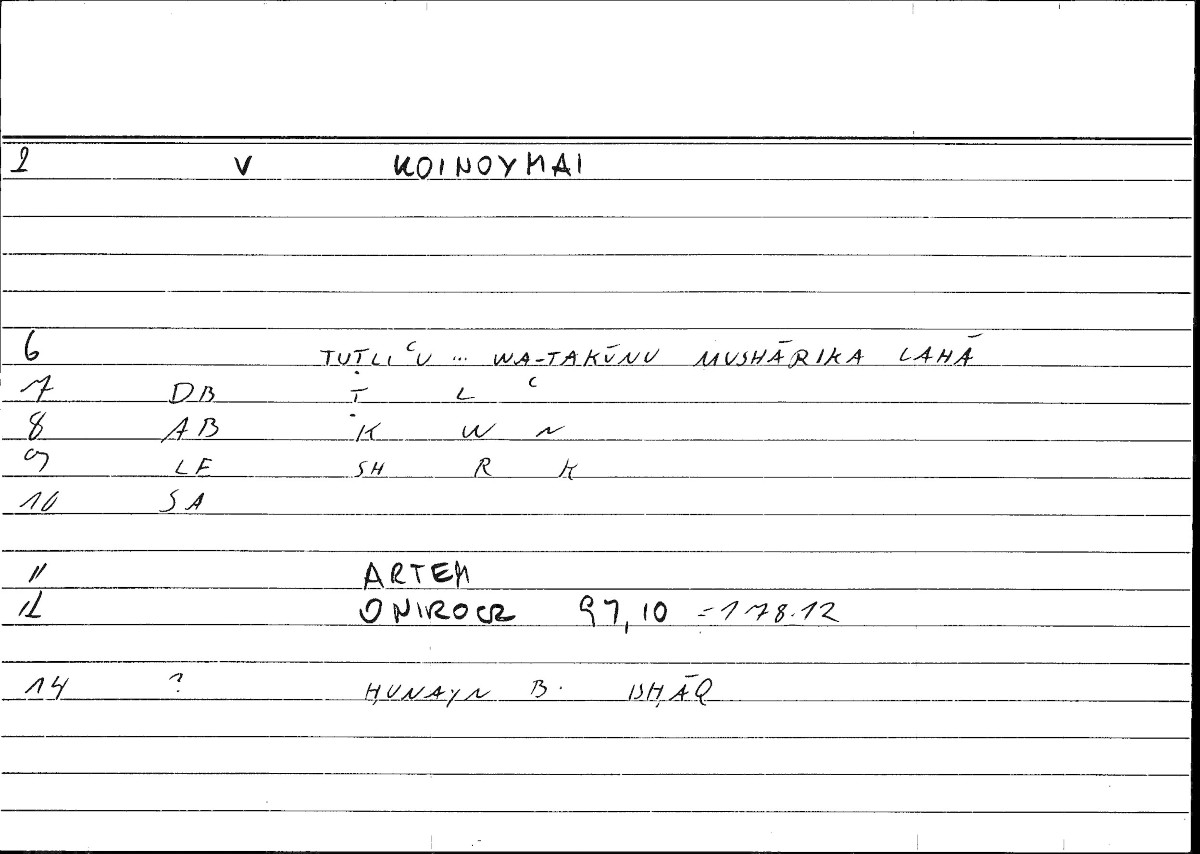 2 V KOINOYMAI
6 TUṬLIʿU ... WA-TAKŪNU MUSHĀRIKA LAHĀ
7 DB Ṭ L ʿ
8 AB K W N
9 LE SH R K
10 SA
11 ARTEM
12 ONIROCR 97,10 =178.12
14 ? ḤUNAYN B. ISḤĀQ